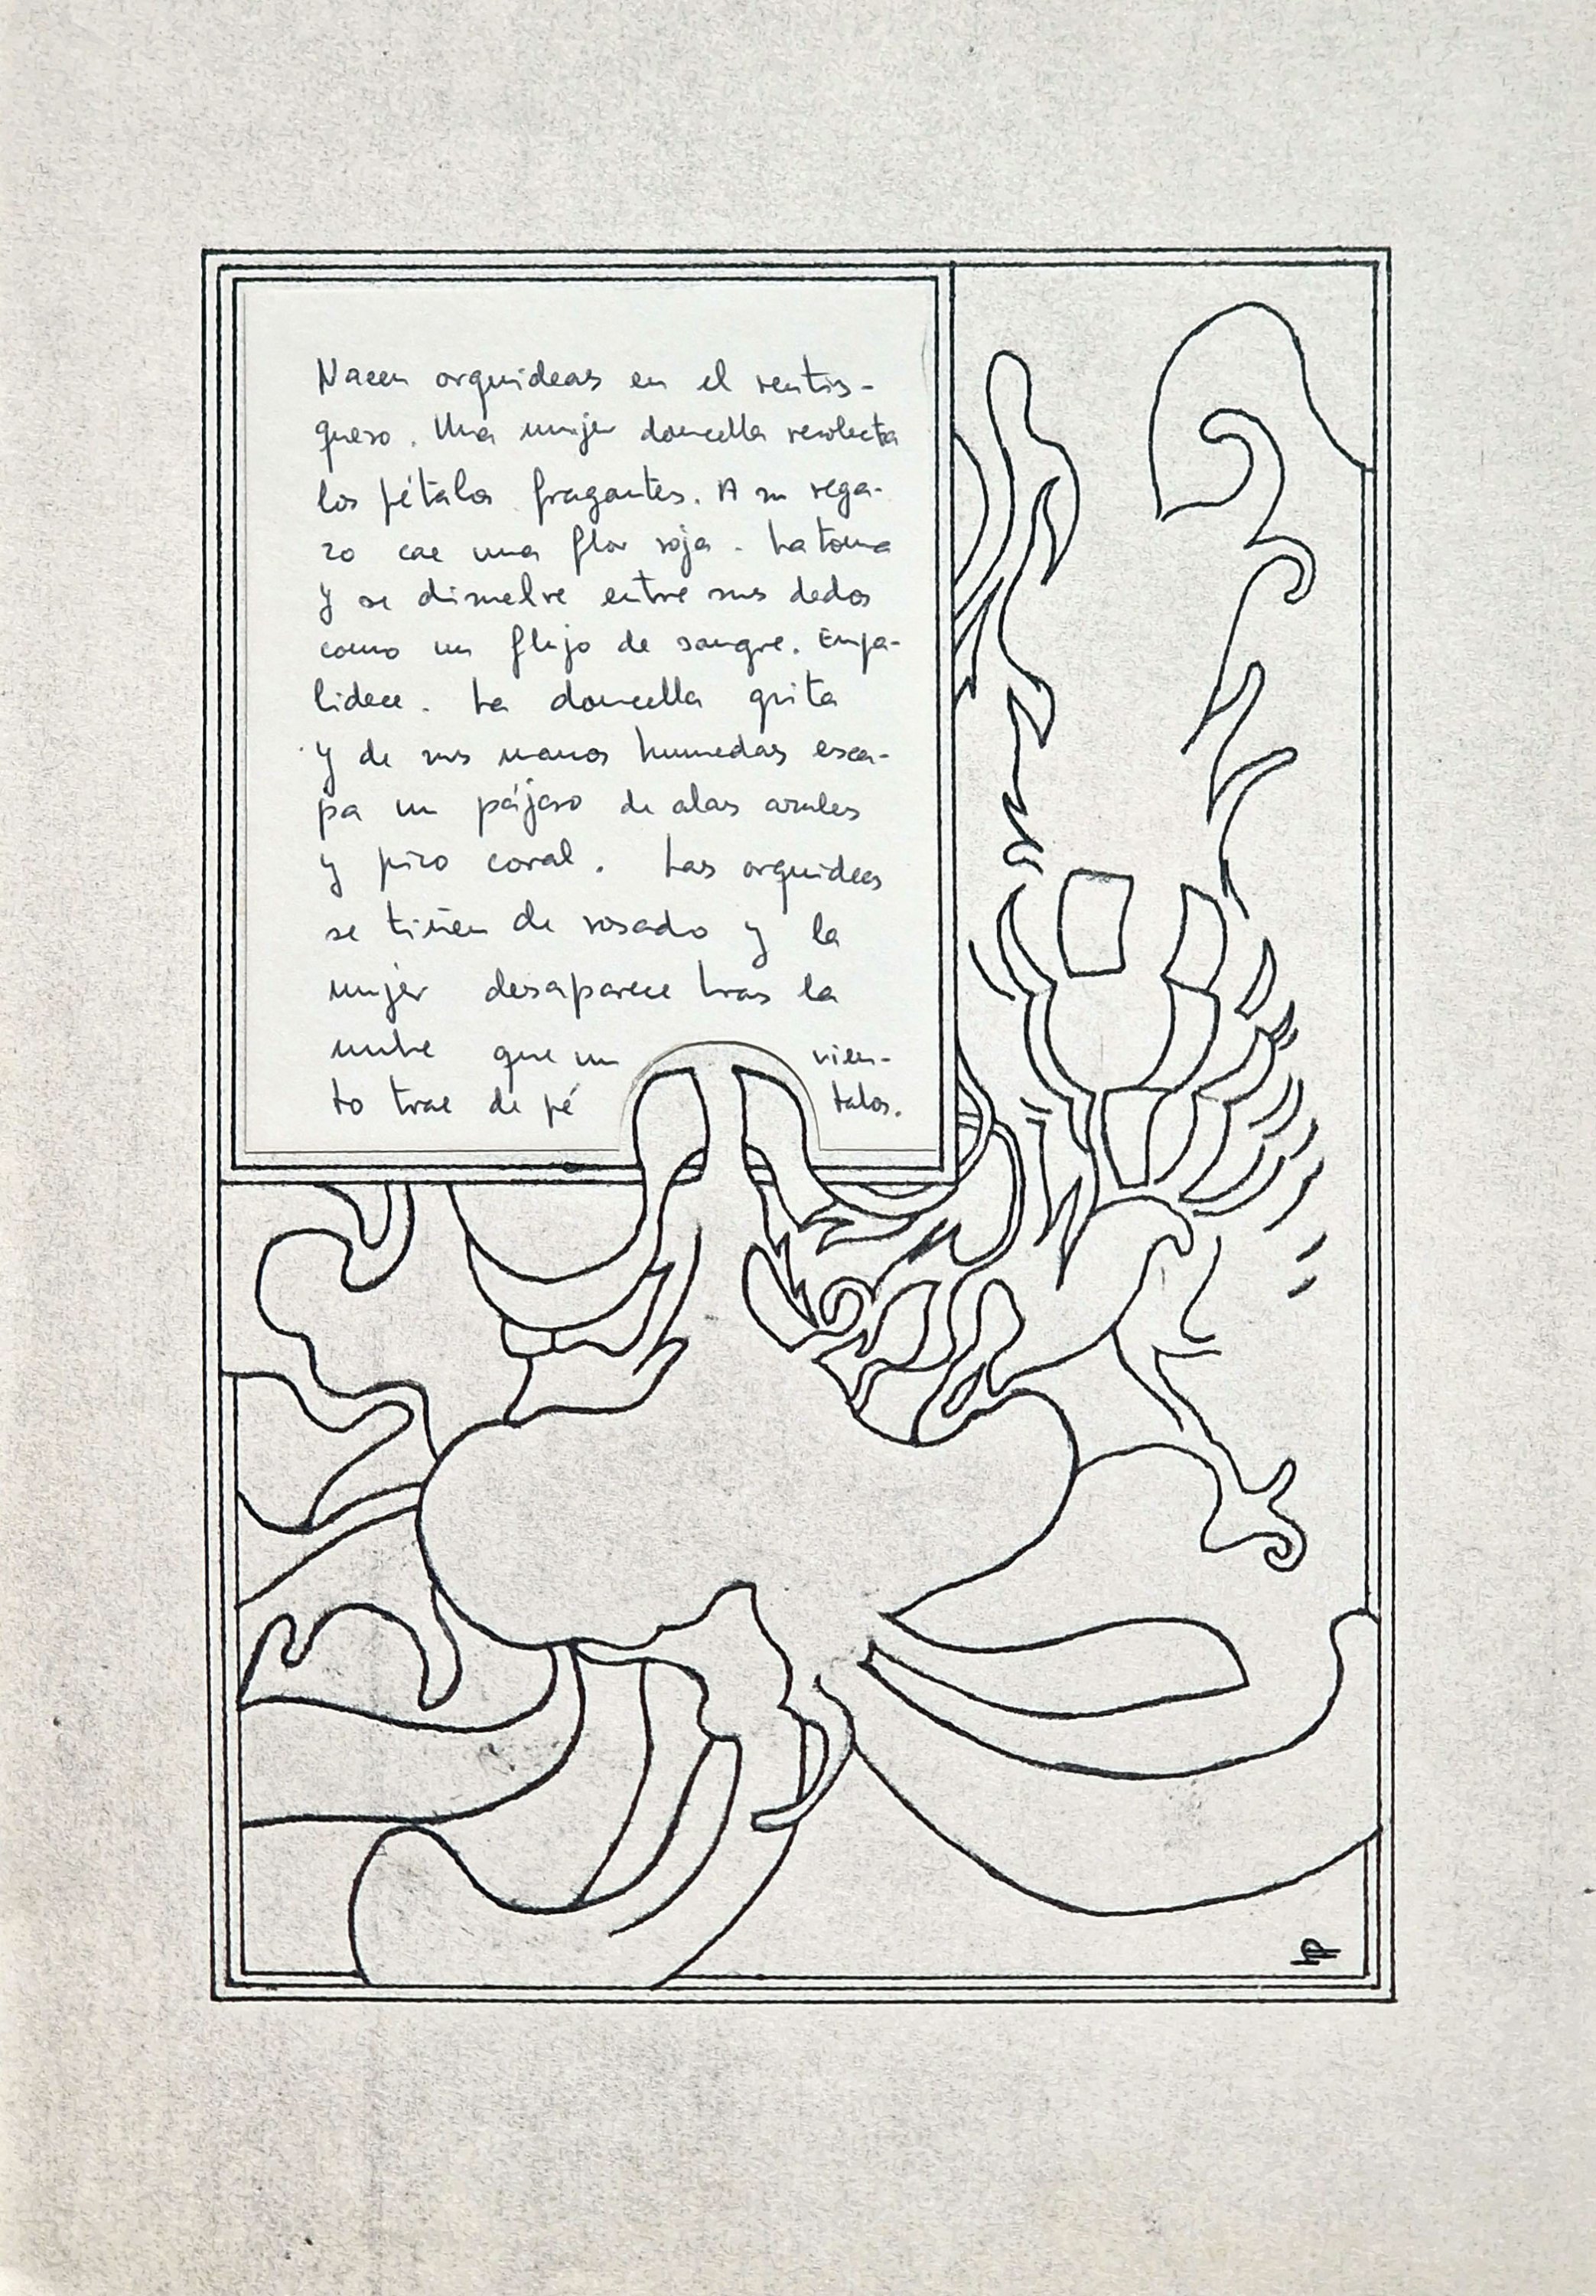 Nacen orquídeas en el ventis-
quero. Una mujer doncella recolecta
los pétalos fragantes. A su rega-
zo cae una flor roja. La toma
y se disuelve entre sus dedos
como un flujo de sangre. Empa-
lidece. La doncella grita
y de sus manos humedas esca-
pa un pájaro de alas azules
y pico coral. Las orquídeas
se tiñen de rosado y la
mujer desaparece tras la
nube que un vien-
to trae de pétalos.